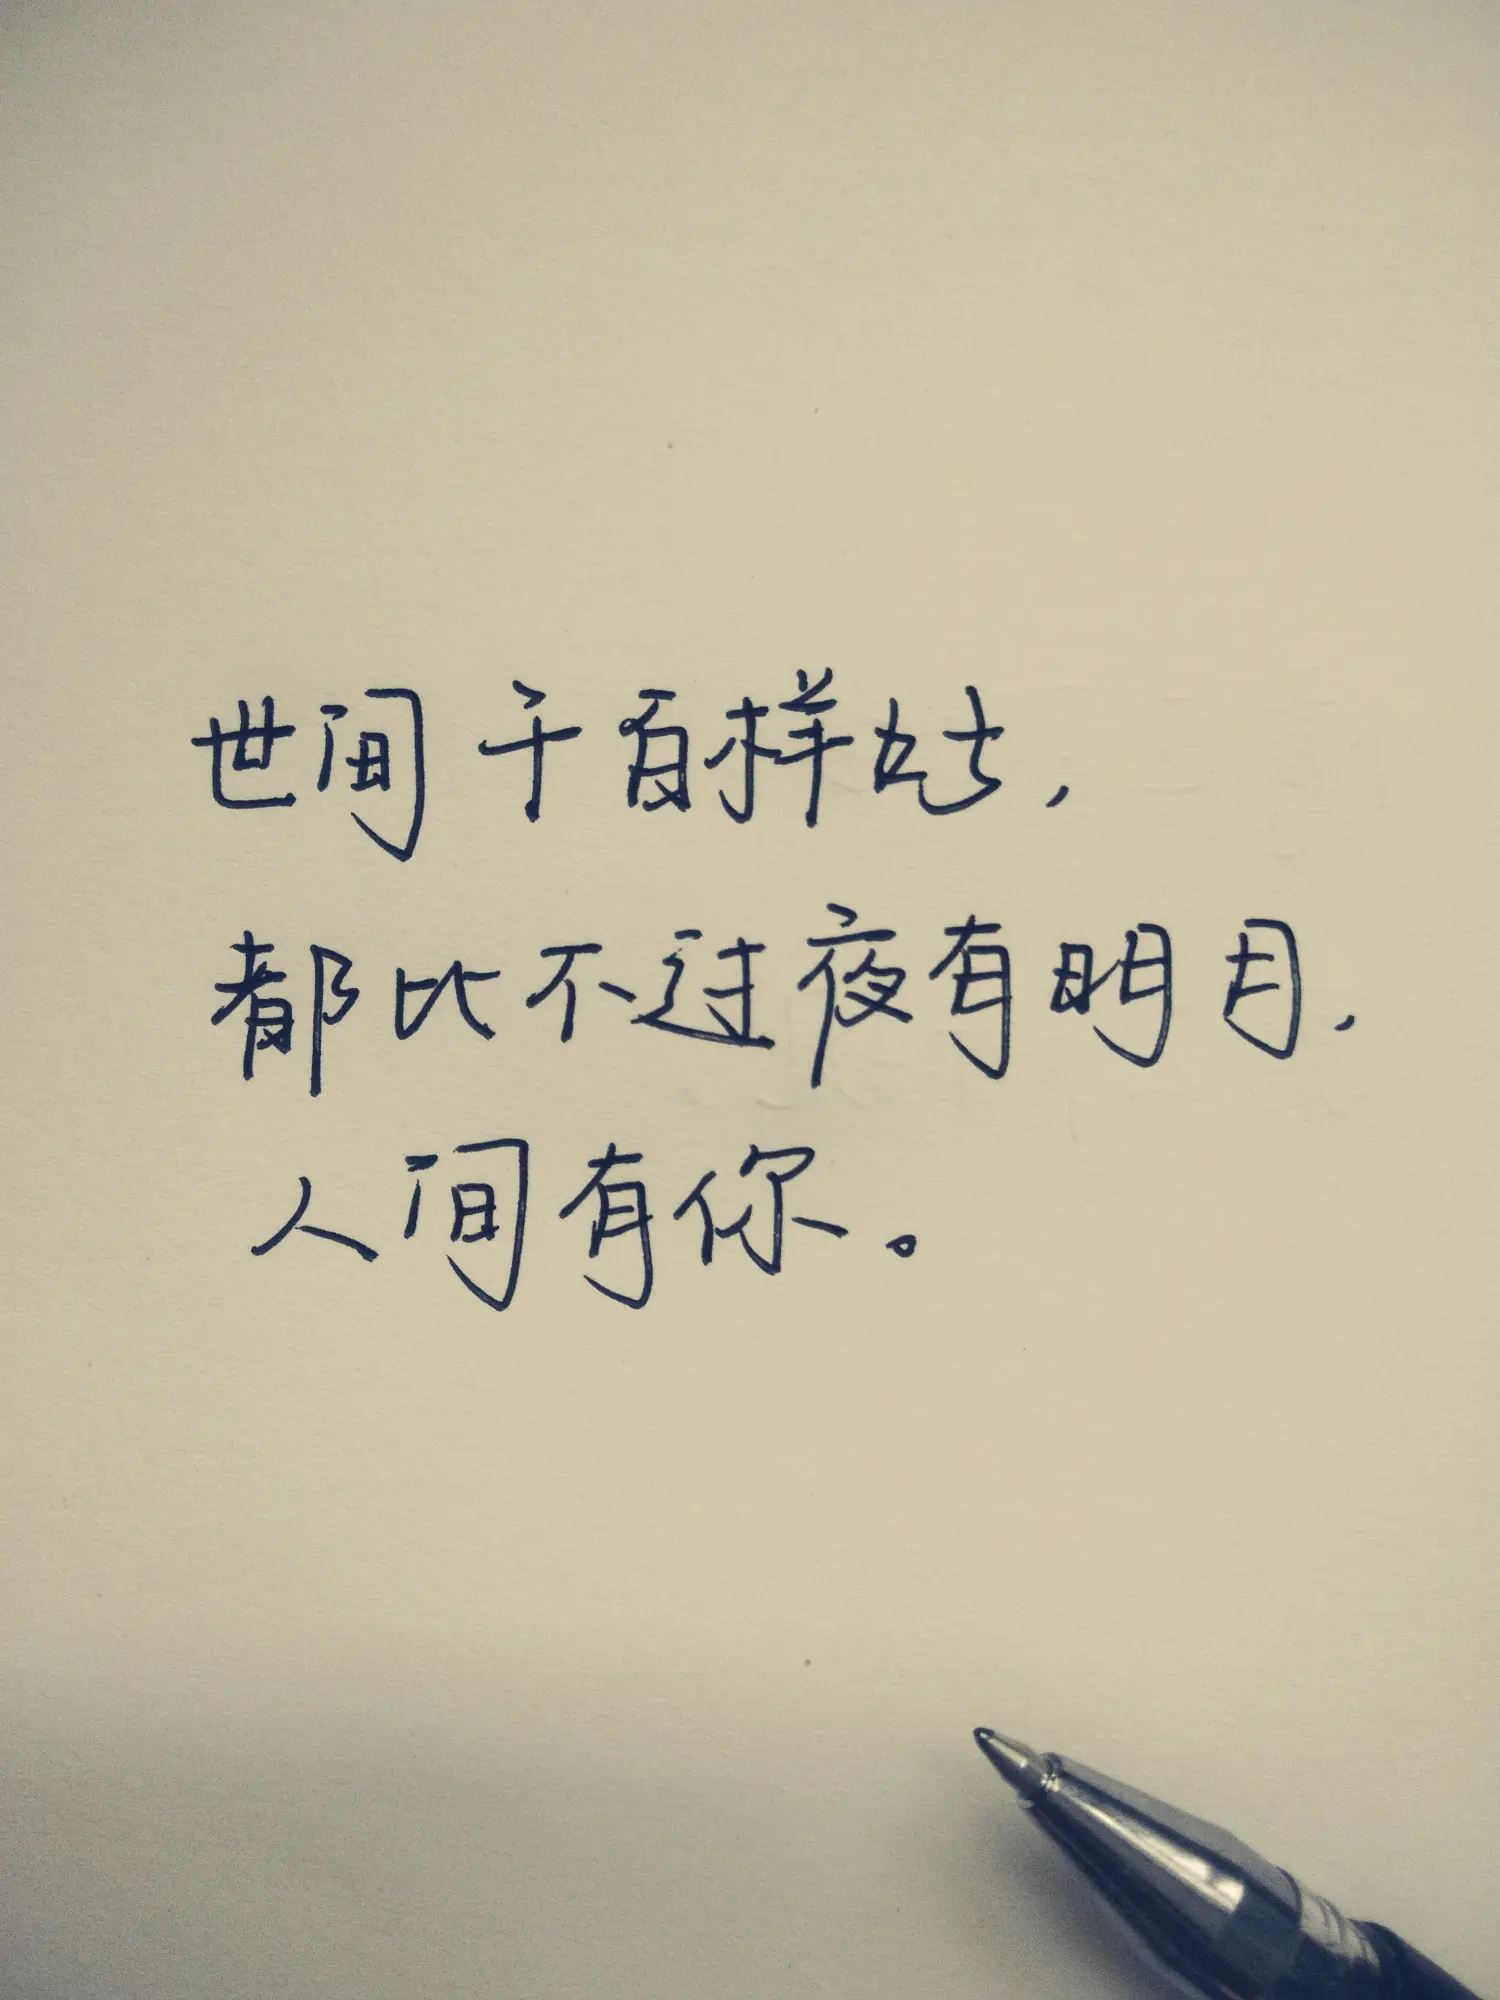 世间千百样好，
都比不过夜有明月，
人间有你。